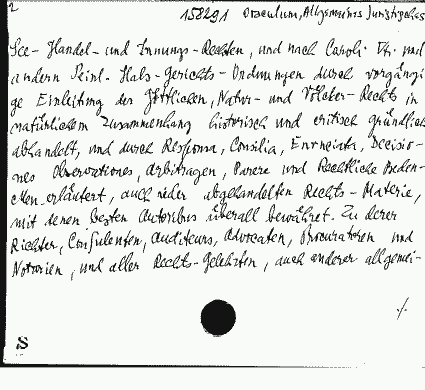 2
158291 Oraculum, Allgemeines Juristisches
See- Handel- und Innungs-Rechten, und nach Caroli V. und
andern Peinl. Hals-Gerichts-Ordnungen durch vorgängi
ge Einleitung des Göttlichen, Natur- und Völcker-Rechts in
natürlichem Zusammenhang historisch und critisch gründlich
abhandelt, und durch Responsa, Consilia, Enunciata, Decisio-
nes Observationes, Arbitragen, Parere und Rechtliche Beden-
cken erläutert, auch jeder abgehandelten Rechts-Materie,
mit denen besten Autoribus überall bewähret. Zu derer
Richter, Consulenten, Auditeurs, Advocaten, Procuratoren und
Notarien, und aller Rechts-Gelehrten, auch anderer allgemei-
./.
S